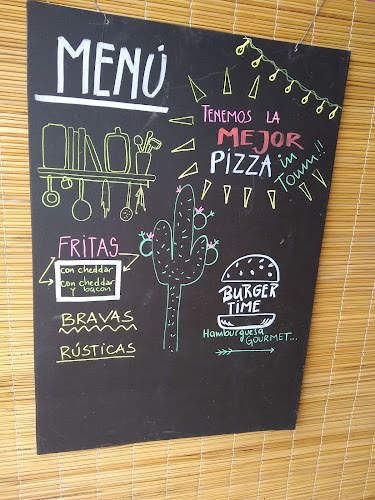 MENÚ
TENEMOS LA
MEJOR
PIZZA
in
Town!!
FRITAS
con cheddar
con cheddar
y bacon
BRAVAS
RÚSTICAS
BURGER
TIME
Hamburguesa
GOURMET...